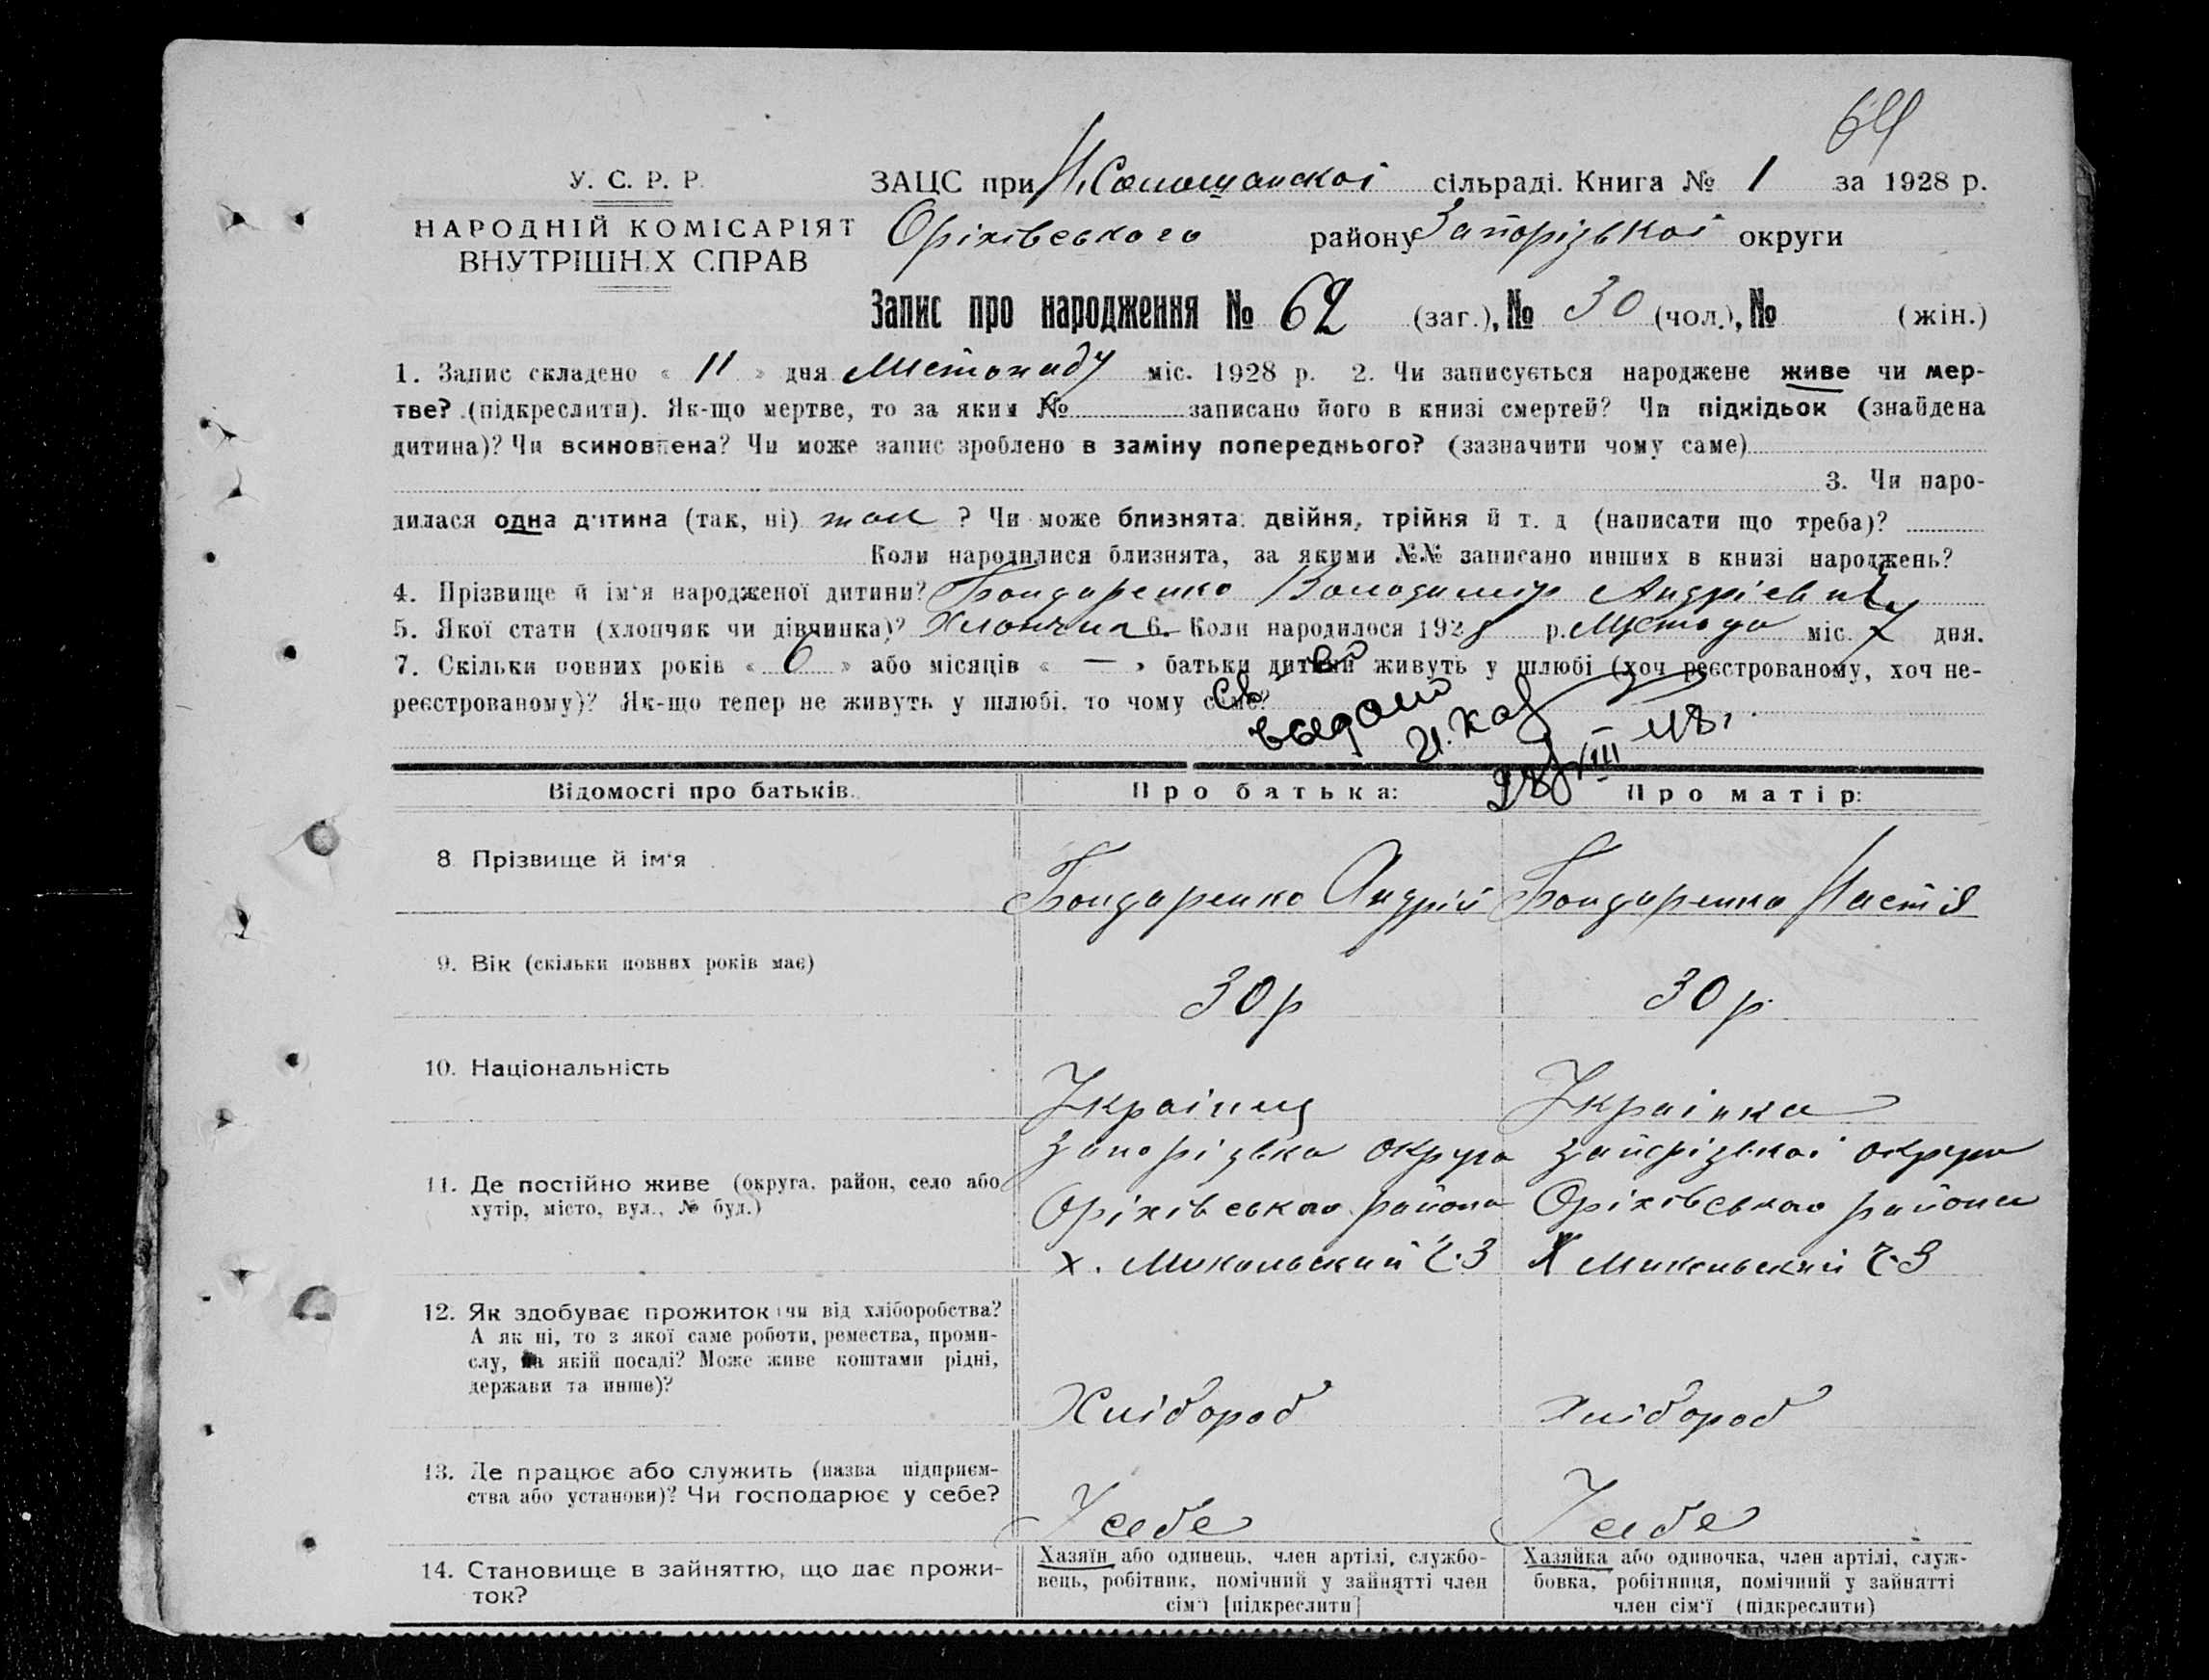 64
У. С. Р. Р.
НАРОДНІЙ КОМІСАРІЯТ
ВНУТРІШН.Х СПРАВ
ЗАЦС при сільраді. Книга № 1 за 1928 р.
Оріхівського району Запорізької округи
Запис про народження № 62 (заг.), № 30 (чол.), № (жін.)
1. Запис складено « 11 » дня Листопаду міс. 1928 р. 2. Чи записується народжене живе чи мер-
тве? (підкреслити). Як-що мертве, то за яким № записано його в книзі смертей? Чи підкідьок (знайдена
дитина)? Чи всиновлена? Чи може запис зроблено в заміну попереднього? (зазначити чому саме)
3. Чи наро-
дилася одна дитина (так, ні) так ? Чи може близнята: двійня, трійня й т. д (написати що треба)?
Коли народилися близнята, за якими №№ записано инших в книзі народжень?
4. Прізвище й ім'я народженої дитини? Бондаренко Володимір Андрієвич
5. Якої стати (хлопчик чи дівчинка)? Хлопчик 6. Коли народилося 1928 р. міс. 7 дня.
7. Скільки повних років « 6 » або місяців « — » батьки дитини живуть у шлюбі (хоч реєстрованому, хоч не-
реєстрованому)? Як-що тепер не живуть у шлюбі, то чому саме?
Св-во
видано
28/VIII
Відомості про батьків. Про батька: Про матір:
8 Прізвище й ім'я Бондаренко Андрій Бондаренко Настія
9. Вік (скільки повних років має) 30 р 30 р.
10. Національність Українец Українка
11. Де постійно живе (округа, район, село або
хутір, місто, вул., № буд.)
Запорізька округа Запорізької округи
Оріхівськаo района Оріхівськаo района
х. Микольский Ч-3 Х Микольский Ч-3
12. Як здобуває прожиток (чи від хліборобства?
А як ні, то з якої саме роботи, ремества, проми-
слу, на якій посаді? Може живе коштами рідні,
держави та инше)?
Хлібороб Хлібороб
13. Де працює або служить (назва підприєм-
ства або установи)? Чи господарює у себе?
У себе У себе
14. Становище в зайняттю, що дає прожи-
ток?
Хазяїн або одинець, член артілі, службо-
вець, робітник, помічний у зайнятті член
сім'ї [підкреслити]
Хазяйка або одиночка, член артілі, служ-
бовка, робітниця, помічний у зайнятті
член сім'ї (підкреслити)